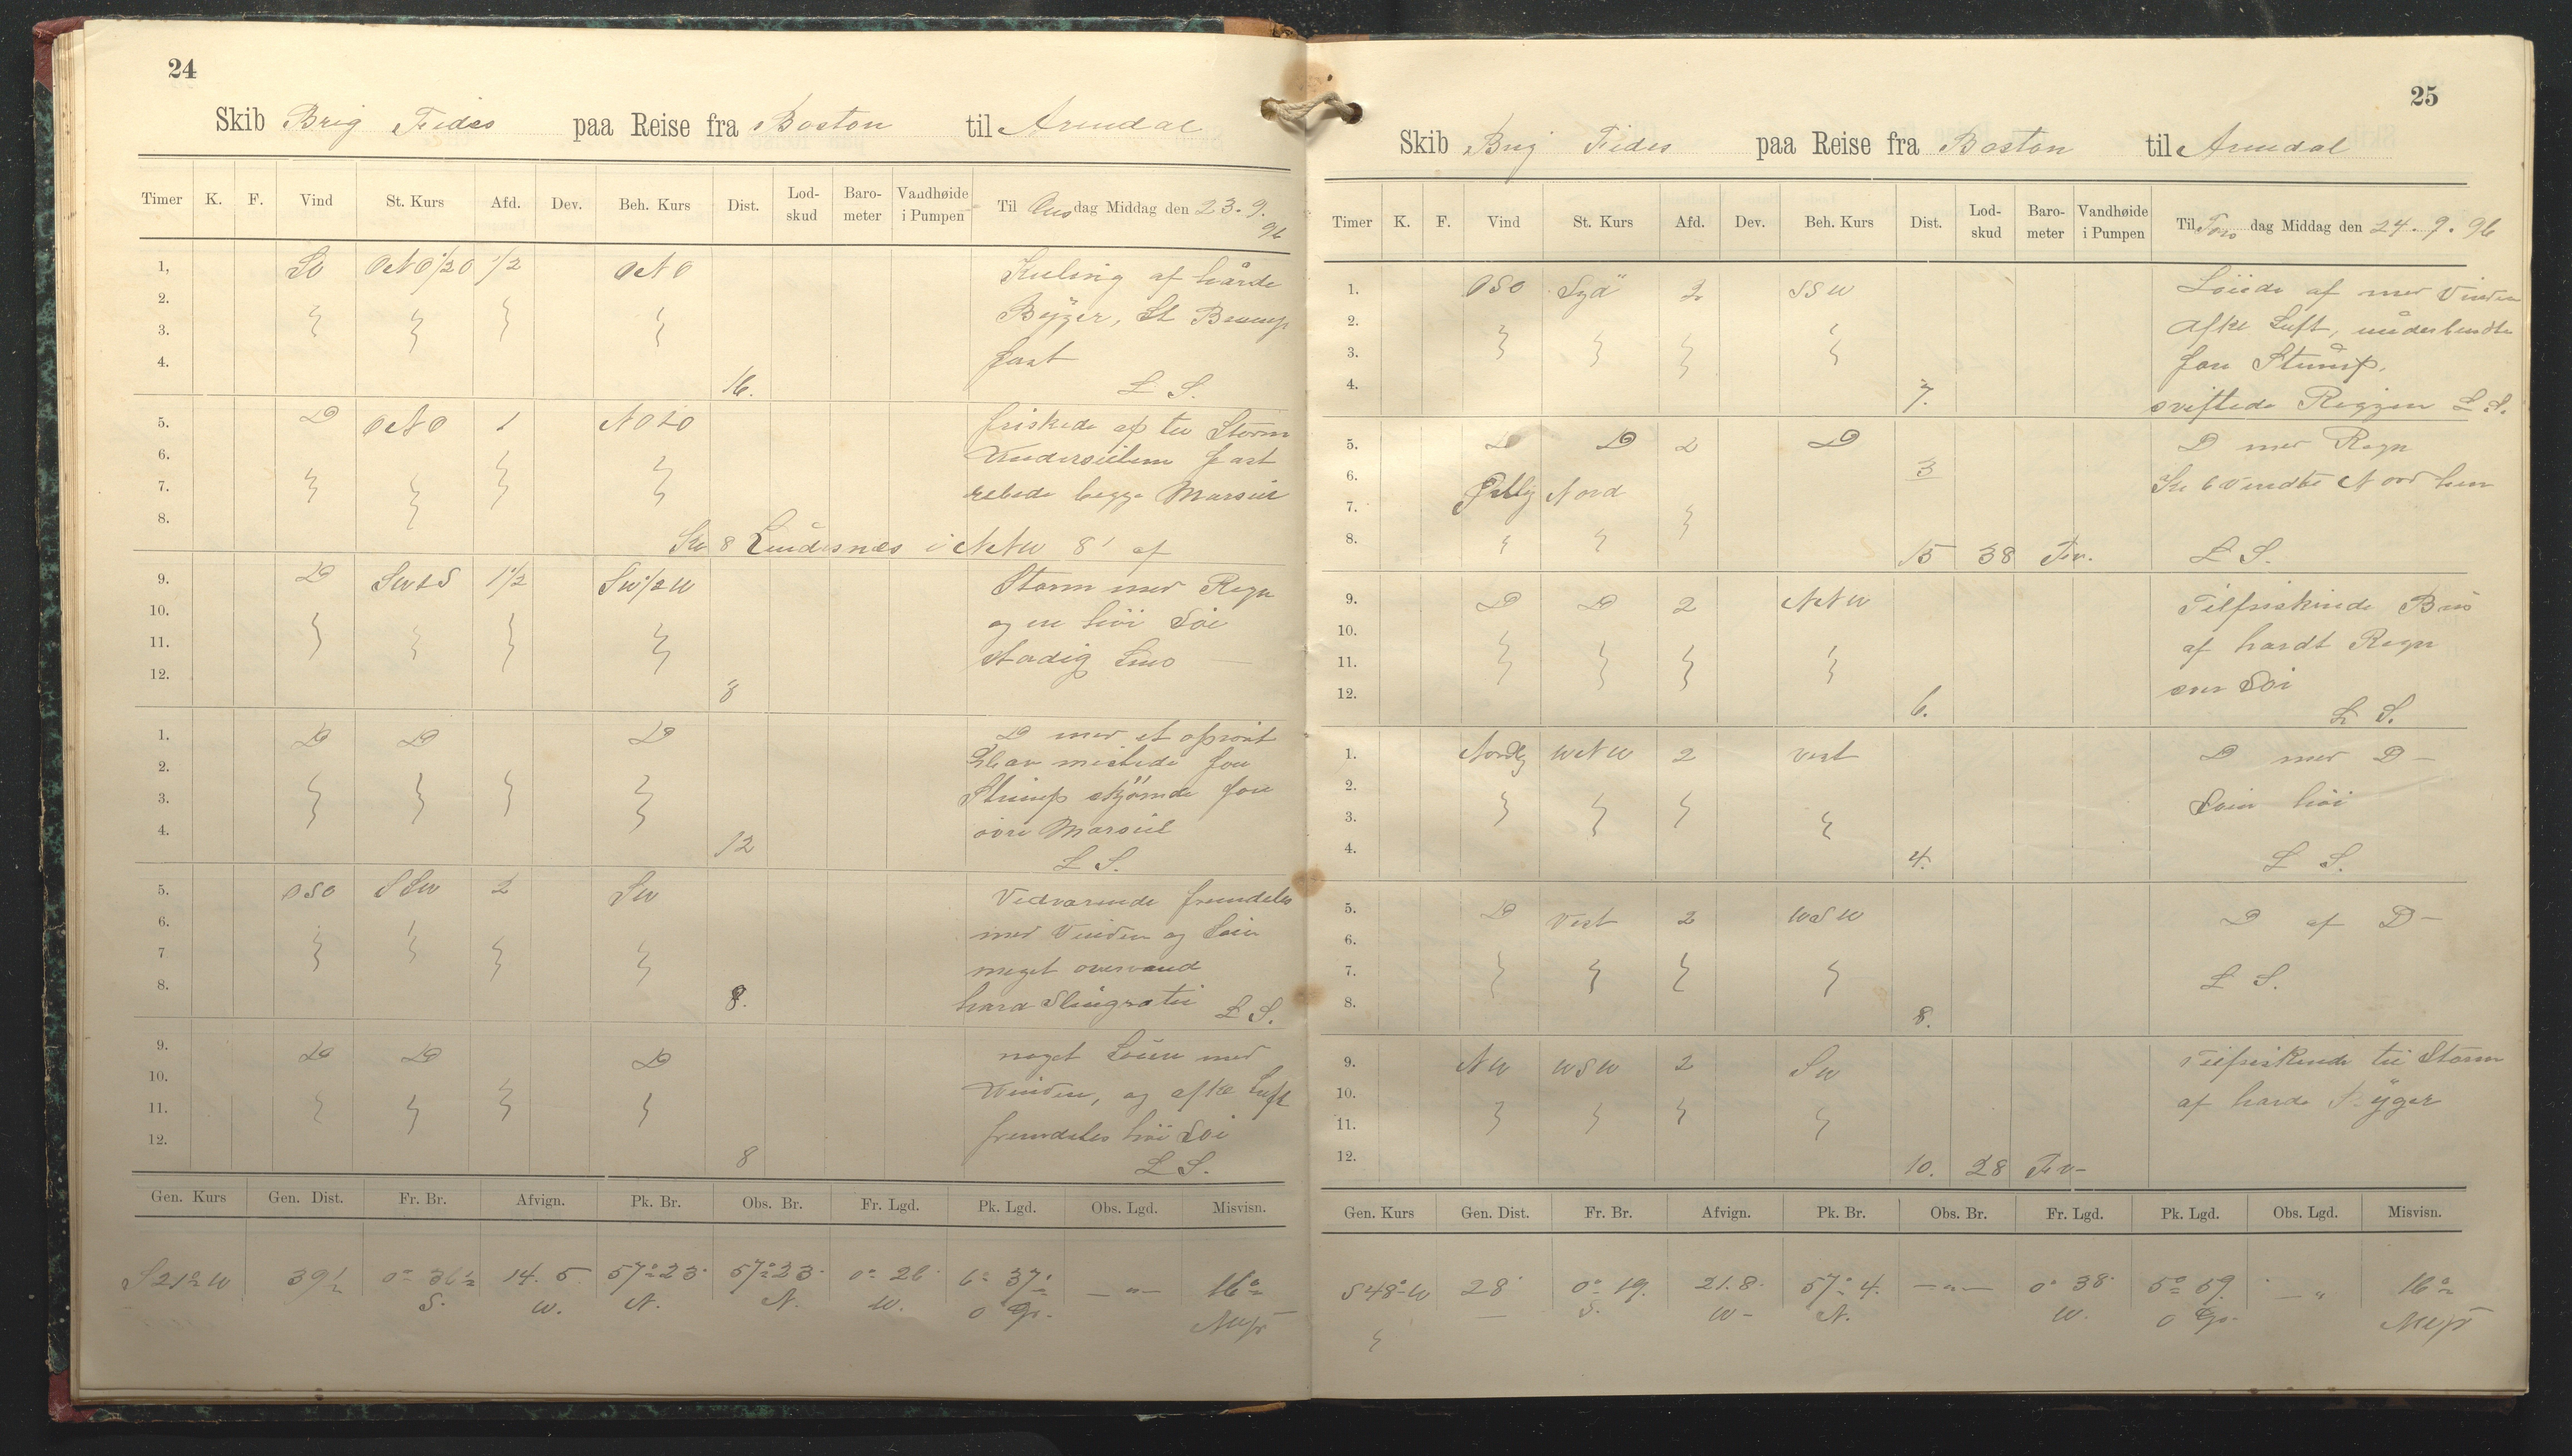 24
Skib Brig Fides paa Reise fra Boston til Arendal
Timer K. F. Vind St. Kurs Afd. Dev. Beh. Kurs Dist. Lod-skud Baro-meter Vandhøide i Pumpen Til Ons dag Middag den 23. 9. 96
1, So ONO 1/2 O 1/2 ONO Kuling af hårde
2. Bÿger, St
3. fast
4. 16. L S.
5. D ONO 1 friskede af til Storm
6. Underseilene fast
7. rebede begge Marseil
8. Kl 8 Lindesnes i NNW 8' af
9. D 1 1/2 Sw 1/2 W Storm med Regn
10. og en höi Söi
11. stadig
12. 8
1. D D D D med et oprört
2. Hav mistede for
3. Stump skjömde for
4. övre Marseil
12 L S.
5. OSO SSW 2 SW Vedvarende fremdeles
6. med Vinden og Söin
7 meget overvand
8. 8. hard Slingra L S.
9. D D D noget Löiere med
10. Vinden, og afkl Luft
11. fremdeles höi Söi
12. 8 L S.
Gen. Kurs Gen. Dist. Fr. Br. Afvign. Pk. Br. Obs. Br. Fr. Lgd. Pk. Lgd. Obs. Lgd. Misvisn.
S 21° W 39 1/2 0° 36 1/2 14. 5 57° 23' 57° 23' 0° 26' 6° 37' — " — 16°
S. W. N. N. W. O Gr.
25
Skib Brig Fides paa Reise fra Boston til Arendal
Timer K. F. Vind St. Kurs Afd. Dev. Beh. Kurs Dist. Lod-skud Baro-meter Vandhøide i Pumpen Til Tors dag Middag den 24. 9. 96
1. OSO Syd 2 SSW Löiede af med Vinden
2. afkl Luft, underbendte
3. for Stump.
4. 7. sviftede Riggen L S.
5. D D 2 D D med Regn
6. Östlig Nord 3 Kl 6 Vendte Nord
7.
8. 15 38 Fv. L S.
9. D D 2 NNW Tilfriskende Bris
10. af hardt Regn
11. Söi
12. 6. L S.
1. Nordlig WNW 2 Vest D med D —
2. Söin höi
3.
4. 4. L S.
5. D Vest 2 WSW D af D —
6.
7. L S.
8. 8.
9. NW WSW 2 SW Tilfriskende til Storm
10. af harde Bÿger
11.
12. 10. 28 Fv-
Gen. Kurs Gen. Dist. Fr. Br. Afvign. Pk. Br. Obs. Br. Fr. Lgd. Pk. Lgd. Obs. Lgd. Misvisn.
S 48° W 28' 0° 19. 21. 8. 57° 4. — " — 0° 38' 5° 59. — " 16°
S. W — N. W. O Gr.